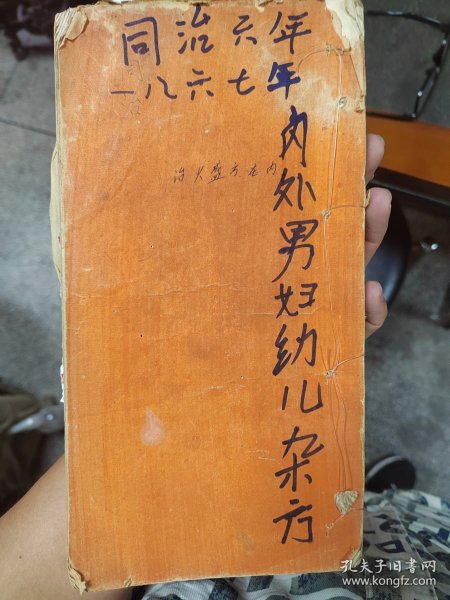 同治六年
一八六七年
内外男妇幼儿杂方
治火盗方在内
孔夫子旧书网
www.kongfz.com